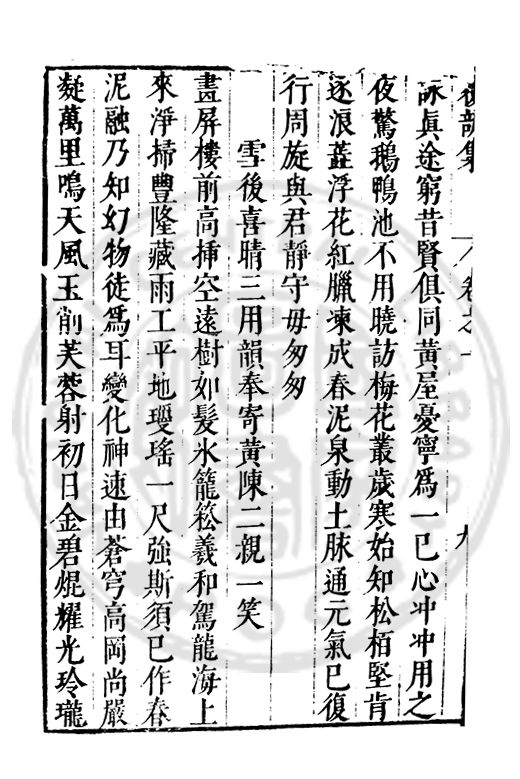 詠眞途窮昔賢俱同黃屋憂寧爲一已心冲冲用之
夜驚鵝鴨池不用曉訪梅花叢歲寒始知松栢堅肯
逐浪蘂浮花紅臘凍成春泥泉動土脉通元氣已復
行周旋與君靜守毋匆匆
雪後喜晴三用韻奉寄黃陳二親一笑
畫屏樓前高揷空遠樹如髮氷籠䓗羲和駕龍海上
來淨掃豐隆藏雨工平地瓊瑤一尺強斯須已作春
泥融乃知幻物徒爲耳變化神速由蒼穹高岡尚嚴
凝萬里鳴天風玉削芙蓉射初日金碧焜耀光玲瓏